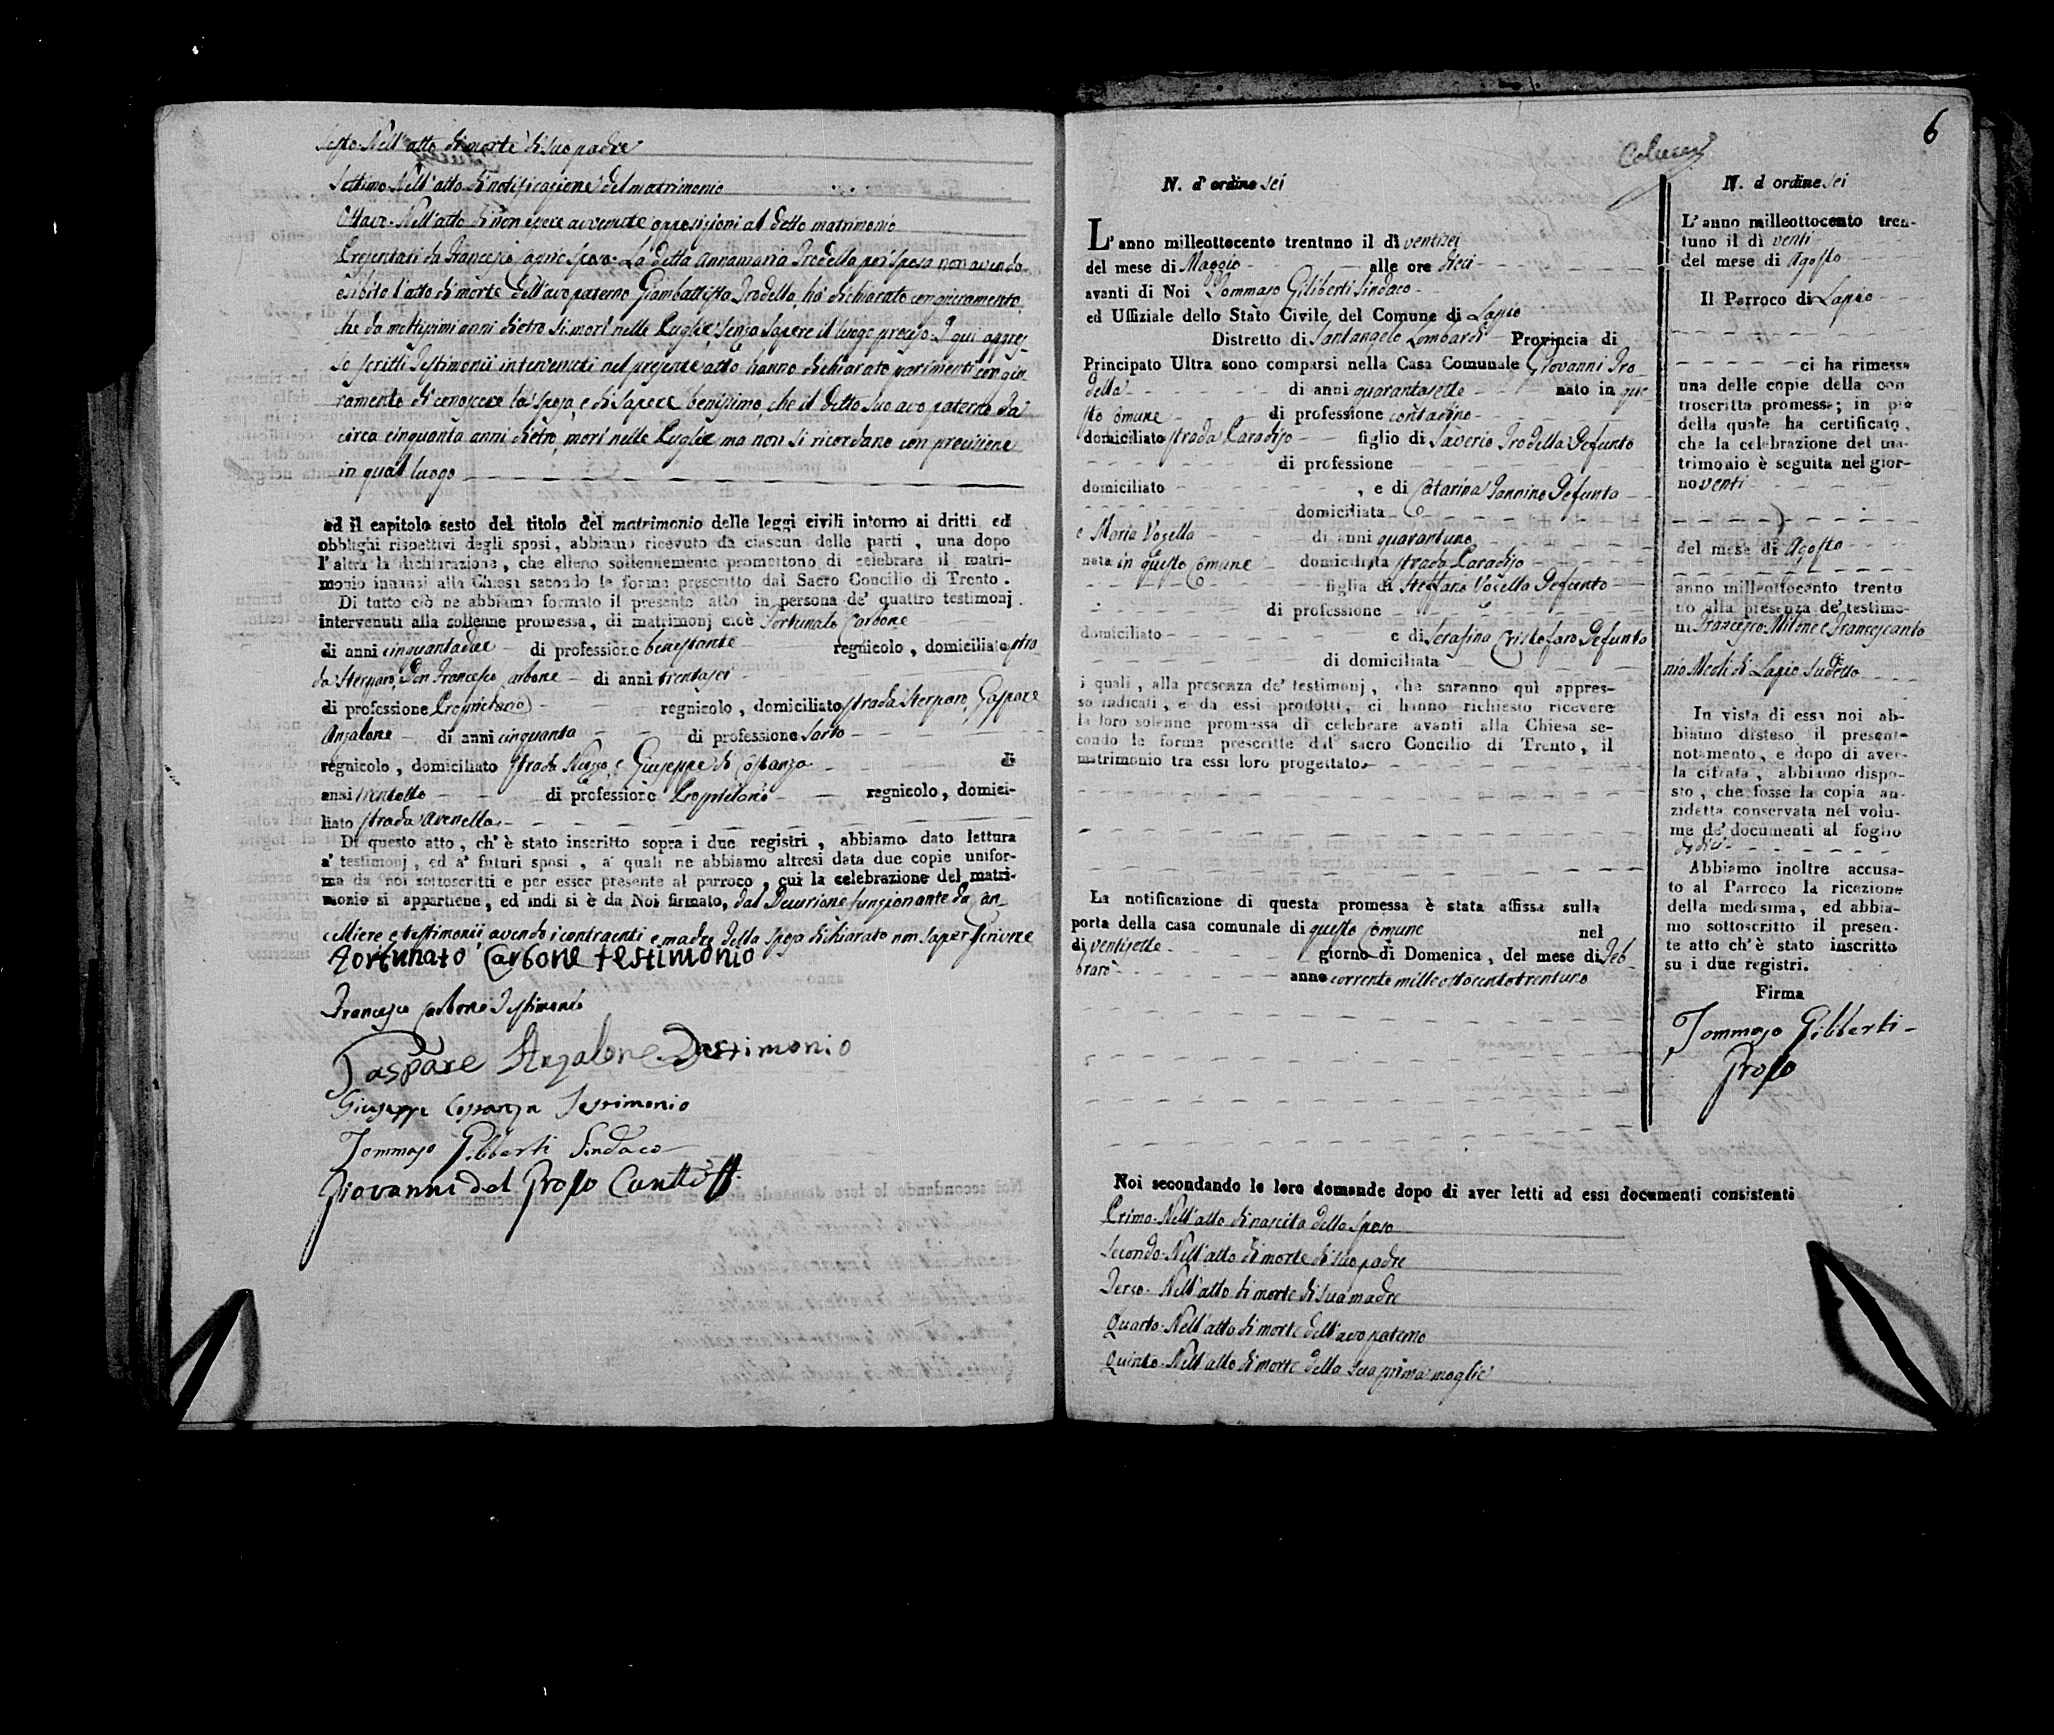 Sesto. Nell'atto di morte di suo padre
Settimo. Nell'atto di notificazione del matrimonio
Ottavo. Nell'atto di non essere avvenute opposizioni al detto matrimonio
Presentati da Francesco sposo. La detta Annamaria Trodella poi sposa non avendo
esibito l'atto di morte dell'avo paterno Giambattista Trodella, ha dichiarato con giuramento,
che da moltissimi anni dietro si morì nelle Puglie, senza sapere il luogo preciso. I qui appres-
so scritti Testimonii intervenuti nel presente atto hanno dichiarato parimenti con giu-
ramento di conoscere la sposa, e di sapere benissimo, che il detto suo avo paterno da
circa cinquanta anni dietro, morì nelle Puglie ma non si ricordano con precisione
in qual luogo
ed il capitolo sesto del titolo del matrimonio delle leggi civili intorno ai dritti ed
obblighi rispettivi degli sposi, abbiamo ricevuto da ciascun delle parti, una dopo
l'altra la dichiarazione, che elleno sollennemente promettono di celebrare il matri-
monio innanzi alla Chiesa secondo le forme prescritto dal Sacro Concilio di Trento.
Di tutto ciò ne abbiamo formato il presente atto in persona de' quattro testimonj
intervenuti alla sollenne promessa, di matrimonj cioè Fortunato Carbone
di anni cinquantadue di professione benestante regnicolo, domiciliato stra
da Sterparo, Don Francesco Carbone di anni trentasei
di professione Proprietario regnicolo, domiciliato strada Sterparo, Gaspare
Anzalone di anni cinquanta di professione Sarto
regnicolo, domiciliato strada e Giuseppe di Costanza di
anni trentotto di professione Proprietario regnicolo, domici-
liato strada Avenella
Di questo atto, ch'è stato inscritto sopra i due registri, abbiamo dato lettura
a' testimonj, ed a' futuri sposi, a' quali ne abbiamo altresì data due copie unifor-
ma da noi sottoscritti e per esser presente al parroco, cui la celebrazione del matri-
monio si appartiene, ed indi si è da Noi firmato, dal Decurione funzionante da can
celliere e testimonii, avendo i contraenti e madre della sposa dichiarato non saper scrivere
Fortunato Carbone testimonio
Francesco Carbone Testimonio
Gaspare Anzalone Testimonio
Giuseppe Costanza Testimonio
Tommaso Giliberti Sindaco
Giovanni del Grosso
6
N. d'ordine sei
L'anno milleottocento trentuno il dì ventisei
del mese di Maggio alle ore dieci
avanti di Noi Tommaso Giliberti Sindaco
ed Uffiziale dello Stato Civile del Comune di Lapio
Distretto di Santangelo Lombardi Provincia di
Principato Ultra sono comparsi nella Casa Comunale Giovanni Tro-
della di anni quarantasette nato in que
sto Comune di professione contadino
domiciliato strada Paradiso figlio di Saverio Trodella Defunto
di professione
domiciliato , e di Catarina Iannino Defunta
domiciliata
e Maria Vosella di anni quarantuno
nata in questo Comune domiciliata strada Paradiso
figlia di Steffano Vosella Defunto
di professione
domiciliato e di Serafina Cristofaro Defunta
di domiciliata
i quali, alla presenza de' testimonj, che saranno quì appres-
so indicati, e da essi prodotti, ci hanno richiesto ricevere
la loro solenne promessa di celebrare avanti alla Chiesa se-
condo le forme prescritte dal sacro Concilio di Trento, il
matrimonio tra essi loro progettato.
La notificazione di questa promessa è stata affissa sulla
porta della casa comunale di questo Comune nel
dì ventisette giorno di Domenica, del mese di Feb-
braro anno corrente milleottocentotrentuno
Noi secondando le loro domande dopo di aver letti ad essi documenti consistenti
Primo. Nell'atto di nascita dello sposo
Secondo. Nell'atto di morte di suo padre
Terzo. Nell'atto di morte di sua madre
Quarto. Nell'atto di morte dell'avo paterno
Quinto. Nell'atto di morte della sua prima moglie
N. d ordine sei
L'anno milleottocento tren-
tuno il dì venti
del mese di Agosto
Il Parroco di Lapio
ci ha rimessa
una delle copie della con
troscritta promessa; in piè
della quale ha certificato,
che la celebrazione del ma-
trimonio è seguita nel gior-
no venti
del mese di Agosto
anno milleottocento trentu
no alla presenza de' testimo-
nj Francesco Milone e Francescanto
nio Meoli di Lapio sudetto
In vista di essa noi ab-
biamo disteso il presente
notamento, e dopo di aver-
la cifrata, abbiamo dispo-
sto, che fosse la copia an-
zidetta conservata nel volu-
me de' documenti al foglio
dodici
Abbiamo inoltre accusa-
to al Parroco la ricezione
della medesima, ed abbia-
mo sottoscritto il presen-
te atto ch'è stato inscritto
su i due registri.
Firma
Tommaso Giliberti
Grosso